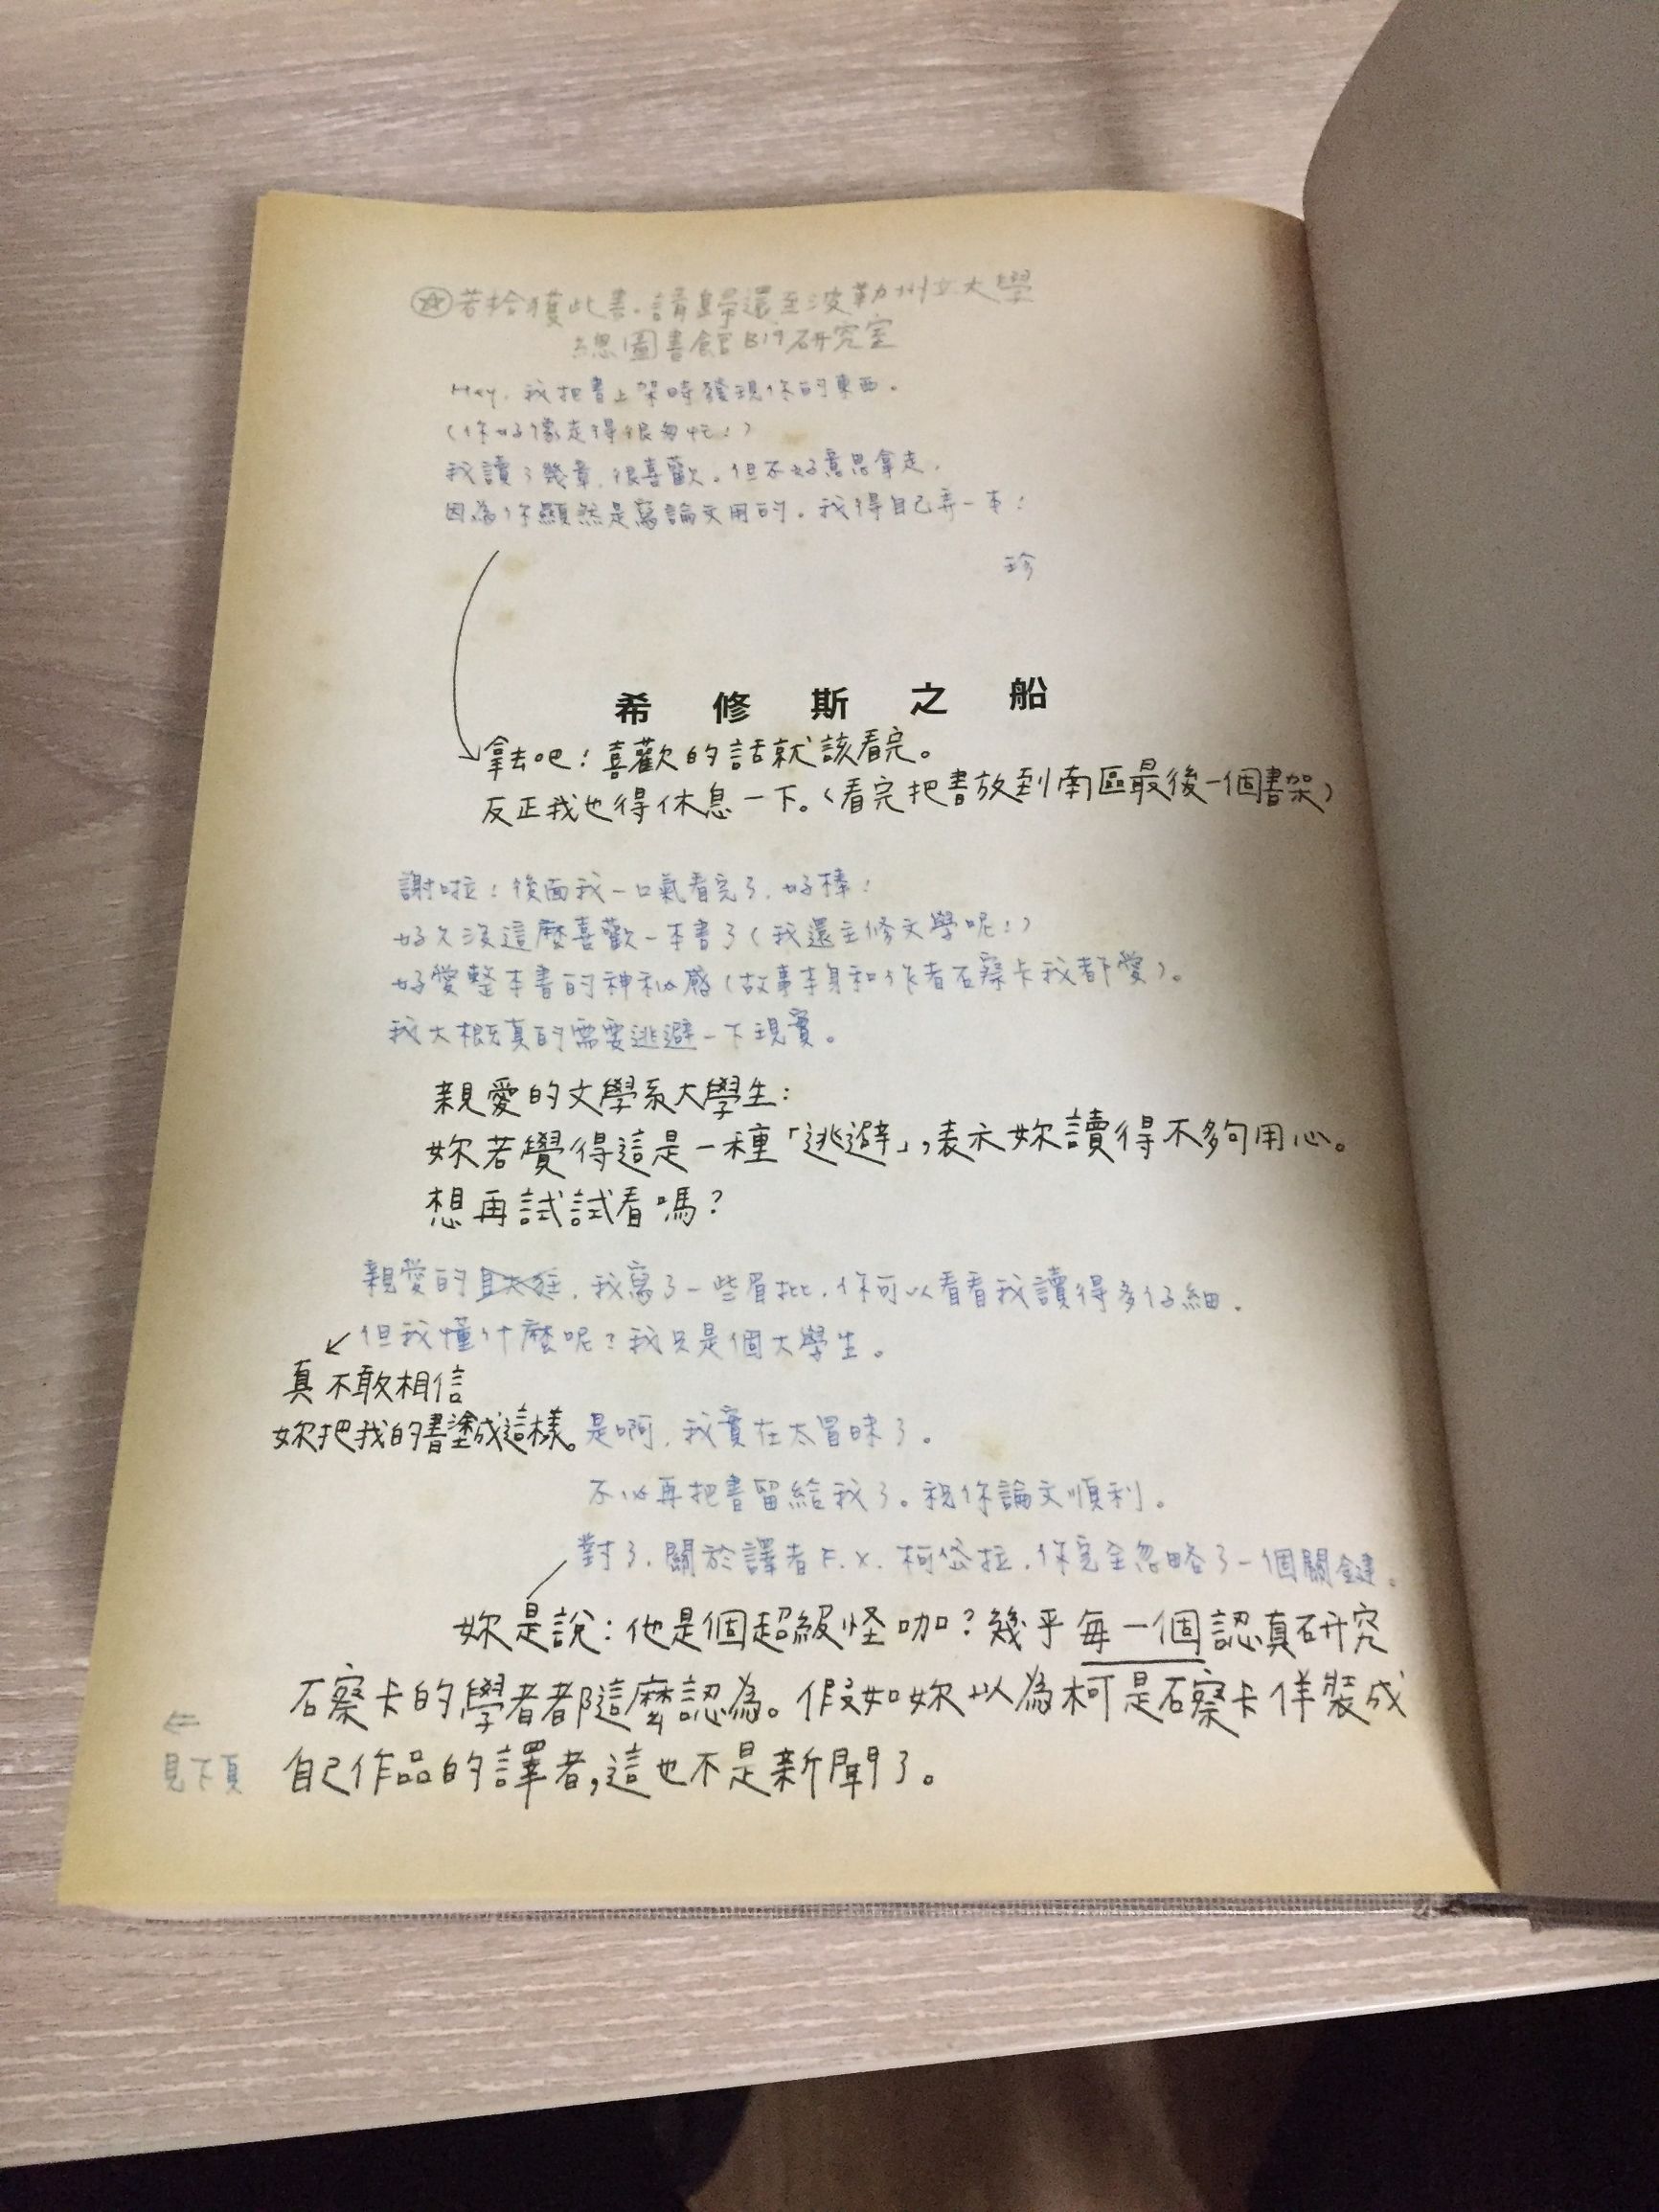 若拾獲此書，請歸還至波勒州立大學
總圖書館B19研究室
Hey, 我把書上架時發現你的東西。
（你好像走得很匆忙！）
我讀了幾章，很喜歡。但不好意思拿走，
因為你顯然是寫論文用的。我得自己弄一本！
珍
希修斯之船
拿去吧！喜歡的話就該看完。
反正我也得休息一下。（看完把書放到南區最後一個書架）
謝啦！後面我一口氣看完了，好棒！
好久沒這麼喜歡一本書了（我還主修文學呢！）
好愛整本書的神秘感（故事本身和作者石察卡我都愛）。
我大概真的需要逃避一下現實。
親愛的文學系大學生：
妳若覺得這是一種「逃避」，表示妳讀得不夠用心。
想再試試看嗎？
親愛的自大狂，我寫了一些眉批，你可以看看我讀得多仔細。
但我懂什麼呢？我只是個大學生。
真不敢相信
妳把我的書塗成這樣。
是啊，我實在太冒昧了。
不必再把書留給我了。祝你論文順利。
對了，關於譯者F. X. 柯岱拉，你完全忽略了一個關鍵。
妳是說：他是個超級怪咖？幾乎每一個認真研究
石察卡的學者都這麼認為。假如妳以為柯是石察卡佯裝成
自己作品的譯者，這也不是新聞了。
⇐
見下頁